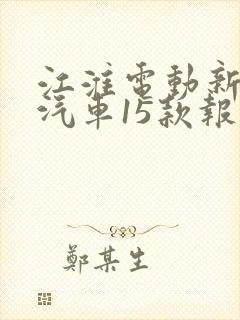 江淮電動新
汽車15款報
鄭某生